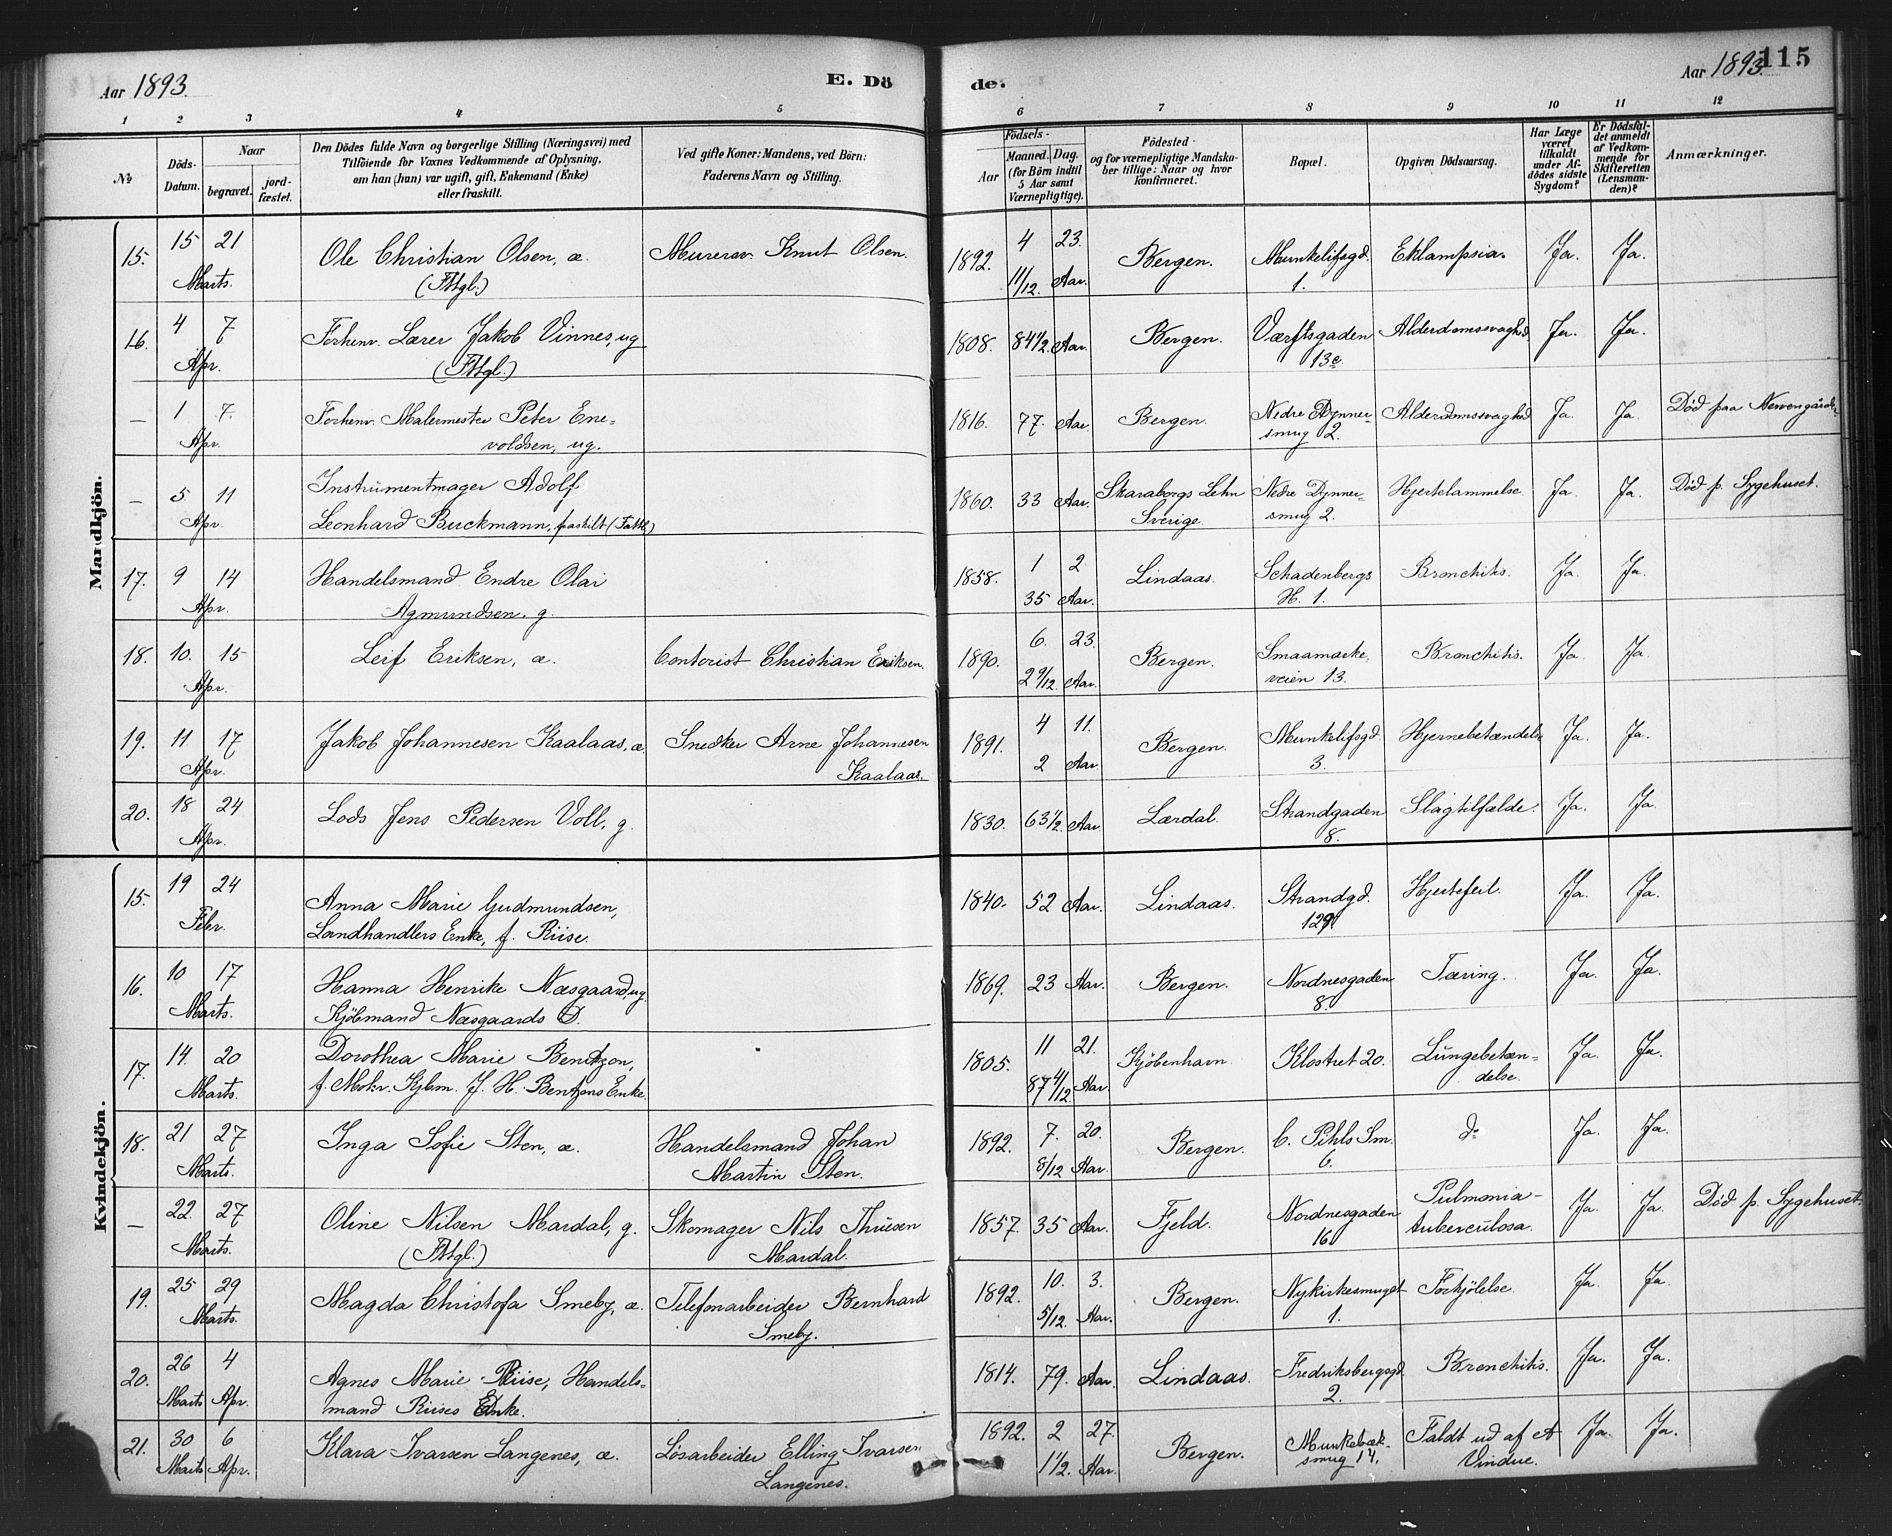 Aar 1893. E. Dö de. Aar 1893. 115
1 2 3 4 5 6 7 8 9 10 11 12
No
Döds-Datum.
Naar
begravet.
jord-fæstet.
Den Dödes fulde Navn og borgerlige Stilling (Næringsvei) med
Tilföiende for Voxnes Vedkommende af Oplysning,
om han (hun) var ugift, gift, Enkemand (Enke)
eller fraskilt.
Ved gifte Koner: Mandens, ved Börn:
Faderens Navn og Stilling.
Födsels-
Aar
Maaned. Dag.
(for Börn indtil
5 Aar samt
Værnepligtige).
Födested
og for værnepligtige Mandska-
ber tillige: Naar og hvor
konfirmeret.
Bopæl.
Opgiven Dödsaarsag.
Har Læge
været
tilkaldt
under Af-
dödes sidste
Sygdom?
Er Dödsfal-
det anmeldt
af Vedkom-
mende for
Skifteretten
(Lensman-
den)?
Anmærkninger.
Mandkjön.
15. 15 21 Marts. Ole Christian Olsen, æ. (Fttgl.) Murersv. Knut Olsen. 1892. 4 23. 11/12. Aar. Bergen. Munkelifsgd. 1. Eklampsia. Ja. Ja.
16. 4 7 Apr. Forhenv. Lærer Jakob Vinnes, ug (Fttgl.) 1808. 84½. Aar. Bergen. Værftsgaden 13c Alderdomssvaghed Ja. Ja.
— 1 7. Apr. Forhenv. Malermester Peter Ene-
voldsen, ug. 1816. 77. Aar. Bergen. Nedre Dynner-
smug 2. Alderdomssvaghed Ja. Ja. Død paa
— 5 11 Apr. Instrumentmager Adolf
Leonhard Buckmann, fraskilt 1860. 33 Aar. Skaraborgs Lehn
Sverige. Nedre Dynner-
smug 2. Hjertelammelse Ja. Ja. Død p. Sygehuset.
17. 9 14 Apr. Handelsmand Endre Olai
Agmundsen. g. 1858. 1 2 35 Aar. Lindaas. Schadenbergs
H. 1. Bronchitis. Ja. Ja.
18. 10. 15 Apr. Leif Eriksen, æ. Contorist Christian Eriksen. 1890. 6. 23. 2 9/12. Aar. Bergen. Smaamarke-
veien 13. Bronchitis. Ja. Ja.
19. 11 17 Apr. Jakob Johannesen Kaalaas, æ Snedker Arne Johannesen
Kaalaas. 1891. 4 11. 2 Aar. Bergen. Munkelifsgd.
3. Hjernebetændelse Ja. Ja.
20. 18 24 Apr. Lods Jens Pedersen Voll, g. 1830. 63½. Aar. Lærdal. Strandgaden
8. Slagtilfælde. Ja. Ja.
Kvindekjön.
15. 19 24 Febr. Anna Marie Gudmundsen,
Landhandlers Enke, f. Riise. 1840. 52 Aar. Lindaas. Strandgd.
129 Hjertefeil. Ja. Ja.
16. 10 17 Marts. Hanna Henrike Næsgaard, ug.
Kjöbmand Næsgaards D. 1869. 23 Aar. Bergen. Nordnesgaden
8. Tæring. Ja. Ja.
17. 14. 20 Marts. Dorothea Marie Bentzon,
J. H. Bentzons Enke. 1805. 11 21. 87 4/12. Aar. Kjöbenhavn. Klostret 20. Lungebetæn-
delse. Ja. Ja.
18. 21 27 Marts. Inga Sofie Sten, æ. Handelsmand Johan
Martin Sten. 1892. 7. 20. 8/12 Aar. Bergen. C. Pihls Sm.
6. do Ja. Ja.
— 22. 27 Marts. Oline Nilsen Mardal, g.
(Fttgl.) Skomager Nils Thuesen
Mardal. 1857. 35 Aar. Fjeld. Nordnesgaden
16 Pulmonia-
tuberculosa. Ja. Ja. Død p. Sygehuset
19. 25 29 Marts. Magda Christofa Smeby, æ. Telefonarbeider Bernhard
Smeby. 1892. 10. 3. 5/12. Aar. Bergen. Nykirkesmuget
1. Forkjölelse. Ja. Ja.
20. 26 4 Marts Apr. Agnes Marie Riise, Handels-
mand Riises Enke. 1814. 79. Aar. Lindaas. Fredriksbergsgd.
2. Bronchitis. Ja. Ja.
21. 30 6 Marts Apr. Klara Ivarsen Langenes, æ. Løsarbeider Elling Ivarsen
Langenes. 1892. 2 27. 1½. Aar. Bergen. Munkebæk-
smug 14. Faldt ud af et
Vindue. Ja. Ja.